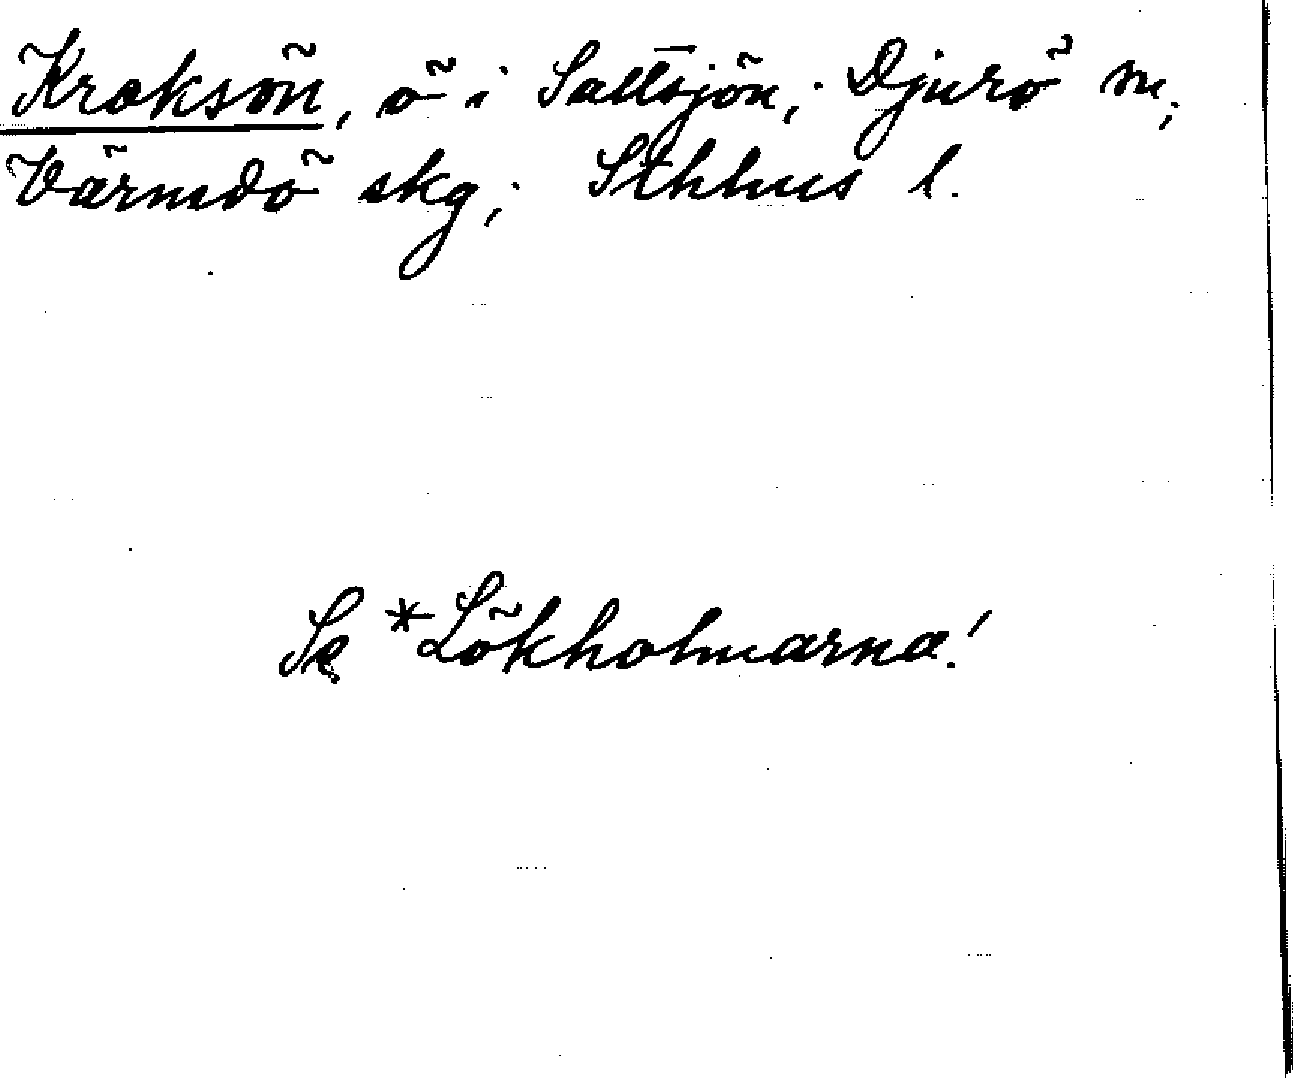 Kroksön, ö i Saltsjön; Djurö sn;
Värmdö skg; Sthlms l.
Se *Lökholmarna!